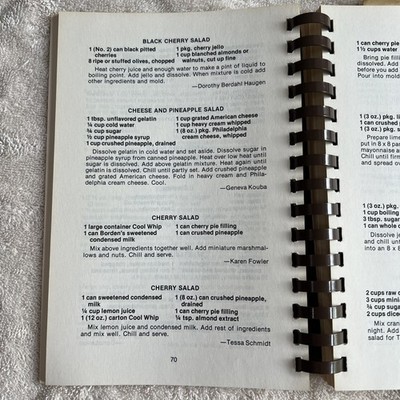 BLACK CHERRY SALAD
1 (No. 2) can black pitted cherries
8 ripe or stuffed olives, chopped
1 pkg. cherry jello
1 cup blanched almonds or walnuts, cut up fine
Heat cherry juice and enough water to make a pint of liquid to
boiling point. Add jello and dissolve. When mixture is cold add
other ingredients and mold.
—Dorothy Berdahl Haugen
CHEESE AND PINEAPPLE SALAD
1 tbsp. unflavored gelatin
¼ cup cold water
¾ cup sugar
½ cup pineapple syrup
1 cup crushed pineapple, drained
1 cup grated American cheese
1 cup heavy cream whipped
1 (8 oz.) pkg. Philadelphia
cream cheese, whipped
Dissolve gelatin in cold water and set aside. Dissolve sugar in
pineapple syrup from canned pineapple. Heat over low heat until
sugar is dissolved. Add above gelatin mixture. Heat again until
gelatin is dissolved. Chill until partly set. Add crushed pineapple
and grated American cheese. Fold in heavy cream and Phila-
delphia cream cheese. Cool.
—Geneva Kouba
CHERRY SALAD
1 large container Cool Whip
1 can Borden's sweetened
condensed milk
1 can cherry pie filling
1 can crushed pineapple
Mix above ingredients together well. Add miniature marshmal-
lows and nuts. Chill and serve.
—Karen Fowler
CHERRY SALAD
1 can sweetened condensed
milk
¼ cup lemon juice
1 (12 oz.) carton Cool Whip
1 (8 oz.) can crushed pineapple,
drained
1 can cherry pie filling
¼ tsp. almond extract
Mix lemon juice and condensed milk. Add rest of ingredients
and mix well. Chill and serve.
—Tessa Schmidt
70
1 can cherry pie
1½ cups water
Bring pie fill
dissolved. Add
before you add
Pour into mold
1 (3 oz.) pkg. l
1 can crushed
1 (3 oz.) pkg.
Prepare lime
put in 8 x 8 pan
mayonnaise a
Chill until firm
and spread ov
1 (3 oz.) pkg.
1 cup boiling
3 tbsp. sugar
1 can whole c
Dissolve je
and chill unt
into an 8 x 8
2 cups raw c
3 cups mini
¾ cup suga
2 cups dice
Mix cran
night. Add
salad for T